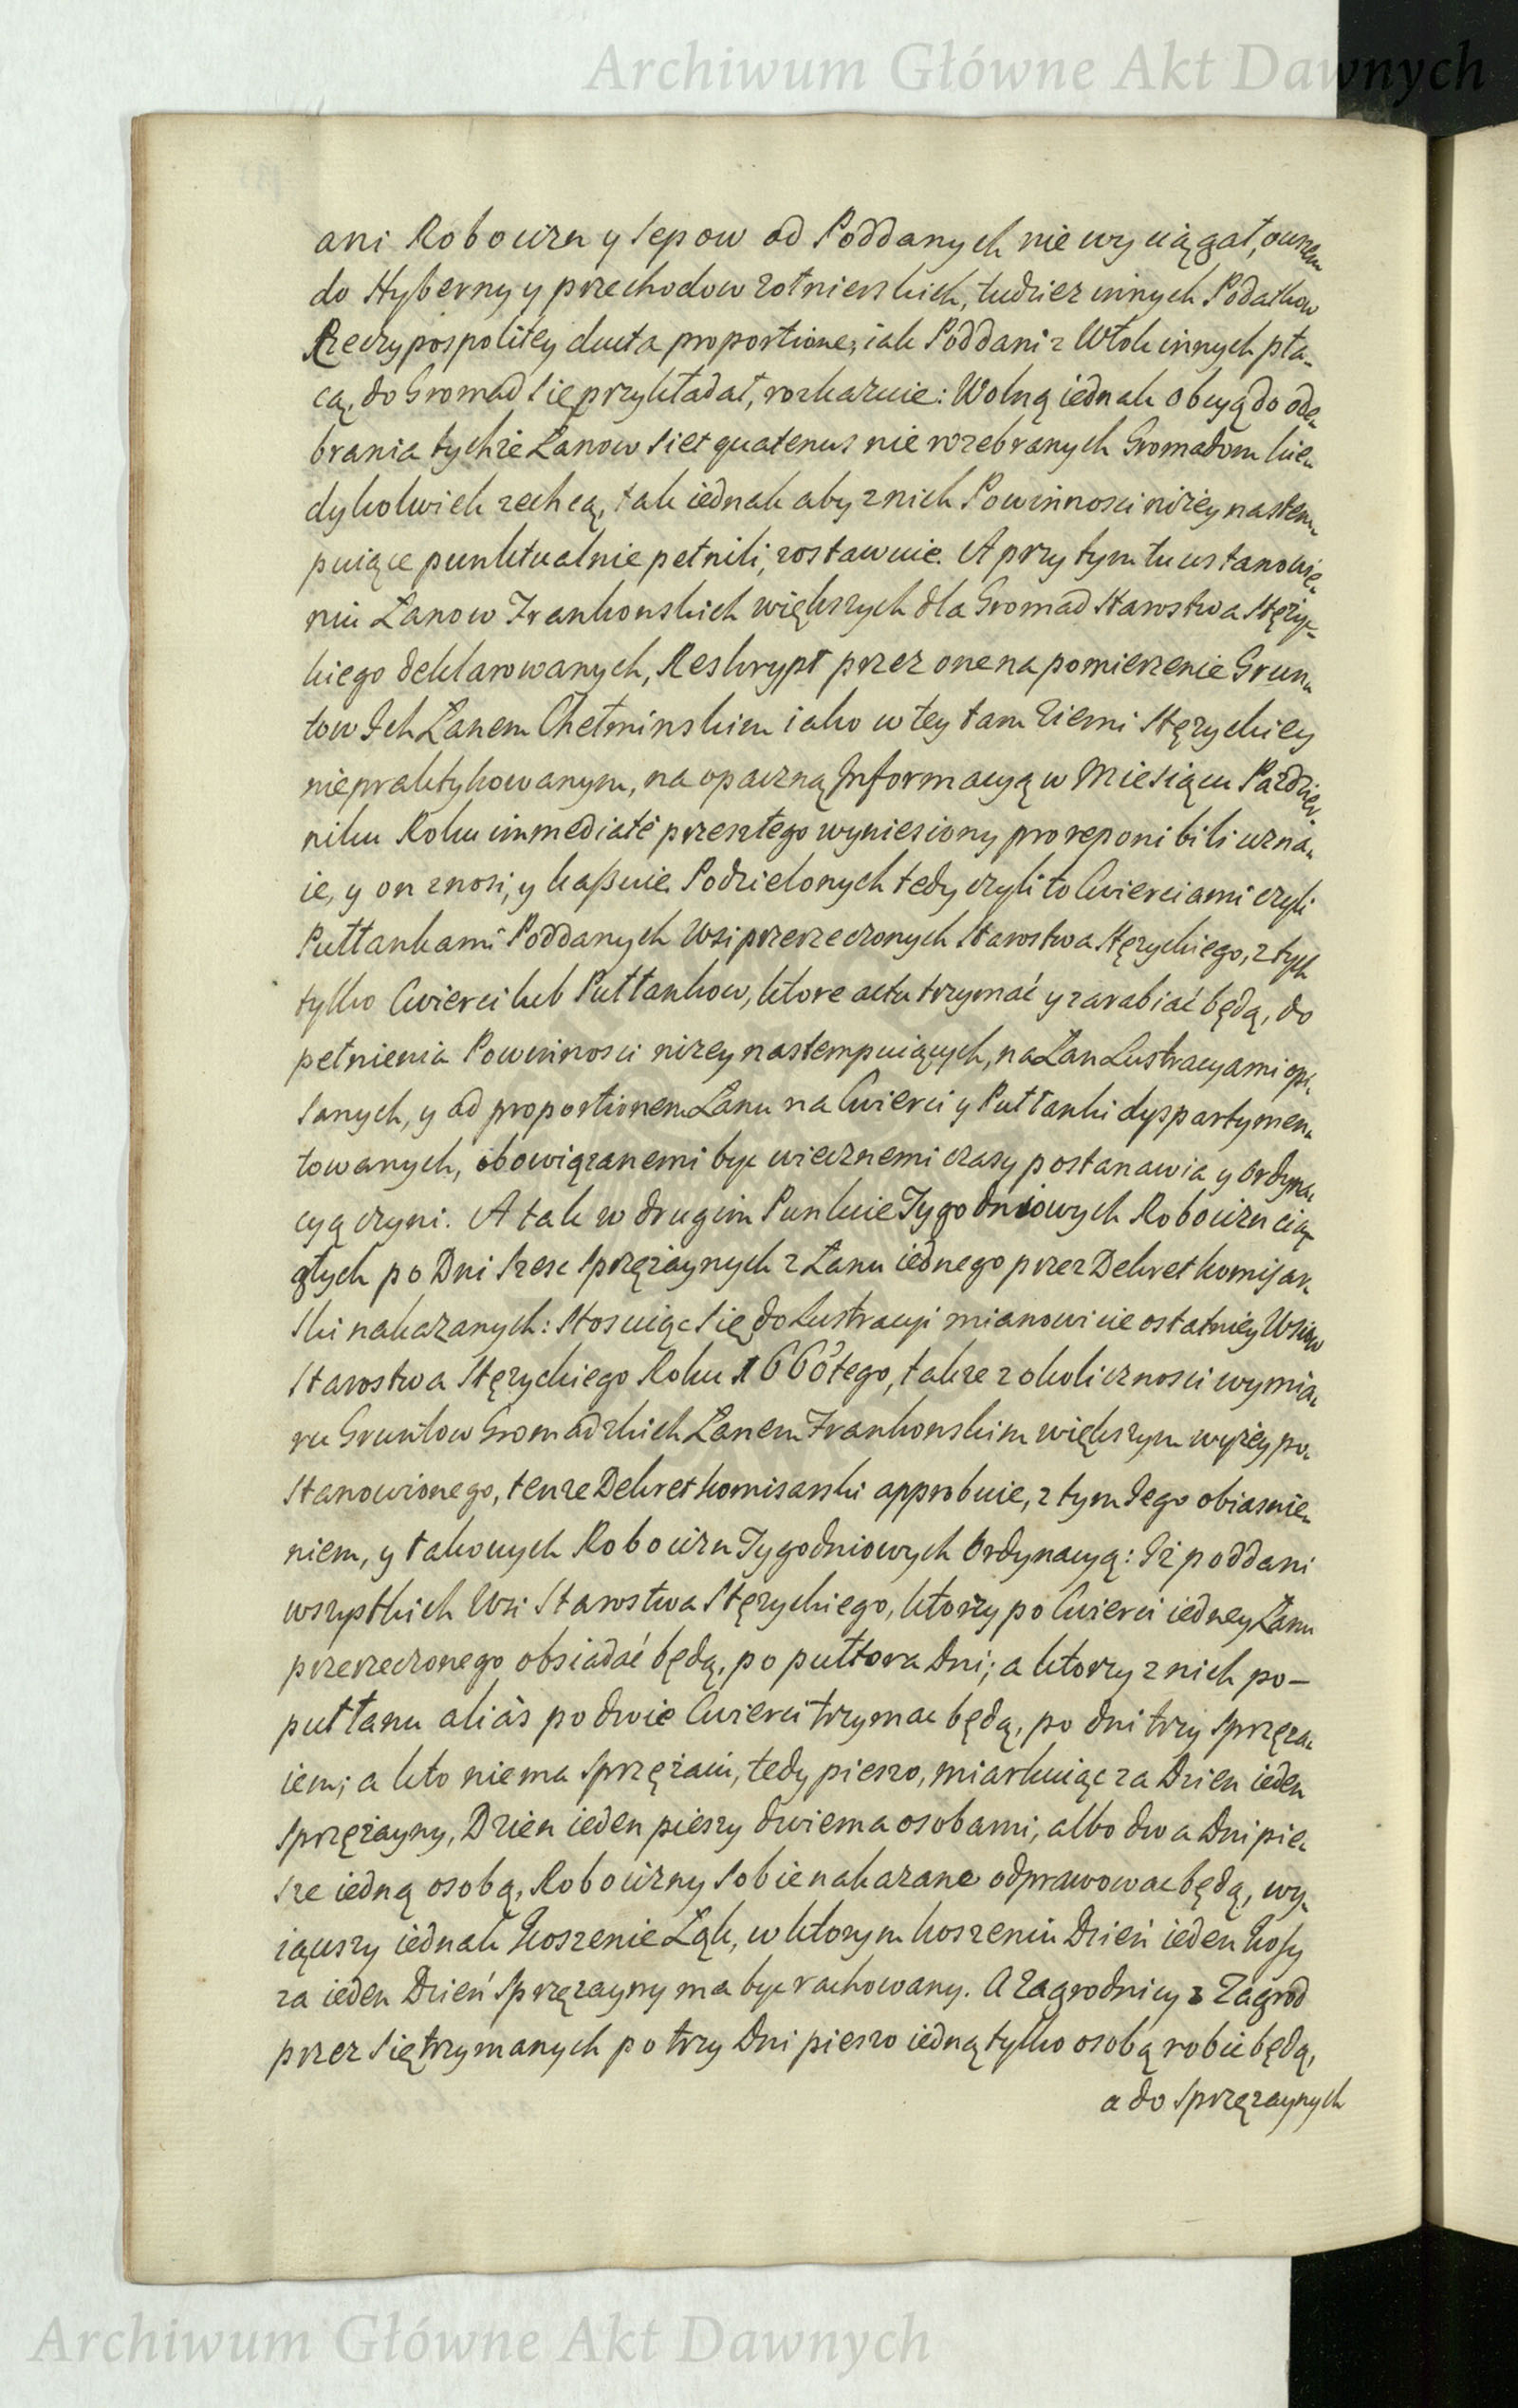 Archiwum Główne Akt Dawnych
ani Robocizn y Sepow od Poddanych nie wyciągał, owszem
do Hyberny y przechodow żołnierskich, tudziesz innych Podatkow
Rzeczypospolitey ducta proportione, iak Poddani z Włok innych pła-
cą, do Gromad się przykładał, rozkazuie: Wolną iednak obcyą do ode-
brania tychże Łanow siet quatenus nie rozebranych Gromadom kie-
dykolwiek zechcą, tak iednak aby z nich Powinnosci niżey nastem-
puiące punktualnie pełnili, zostawuie. A przy tym tu ustanowie-
niu Łanow Frankonskich większych dla Gromad Starostwa Stężyc-
kiego deklarowanych, Reskrypt przez one na pomierzenie Grun-
tow Ich Łanem Chełminskim iako w tey tam Ziemi Stęzyckiey
nie praktykowanym, na opaczną Informacyą w Miesiącu Paździer-
niku Roku immediatè przeszłego wyniesiony pro reponibili uzna-
ie, y on znosi, y kaßuie. Podzielonych tedy czyli to Cwierciami czyli
Pułłankami Poddanych Wsi przerzeczonych Starostwa Stęzyckiego, z tych
tylko Cwierci lub Pułłankow, ktore actu trzymać y zarabiać będą, do
pełnienia Powinnosci nizey nastempuiących, na Łan Lustracyami opi-
sanych, y ad proportionem Łanu na Cwierci y Pułłanki dyspartymen-
towanych, obowiązanemi byc wiecznemi czasy postanawia y Ordyna-
cyą czyni. A tak w drugim Punkcie Tygodniowych Robocizn cią-
głych po Dni Szesc Sprzężaynych z Łanu iednego przez Dekret komisar-
ski nakazanych: Stosuiąc się do Lustracyi mianowicie ostatniey Wsiow
Starostwa Stęzyckiego Roku 1660tego, takze z okolicznosci wymia-
ru Gruntow Gromadzkich Łanem Frankonskim większym wyżey po-
stanowionego, tenze Dekret komisarski approbuie, z tym Jego obiasnie-
niem, y takowych Robocizn Tygodniowych Ordynacyą: Iż poddani
wszystkich Wsi Starostwa Stęzyckiego, ktorzy po Cwierci iedney Łanu
przerzeczonego obsiadać będą, po pułtora Dni; a ktorzy z nich po-
pułłanu aliàs po dwie Cwierci trzymac będą, po dni trzy Sprzęza-
iem; a kto niema Sprzężaiu, tedy pieszo, miarkuiąc za Dzien ieden
Sprzężayny, Dzien ieden pieszy dwiema osobami, albo dwa Dni pie-
sze iedną osobą, Robocizny sobie nakazane odprawowac będą, wy-
iąwszy iednak Koszenie Łąk, w ktorym koszeniu Dzień ieden Kosy
za ieden Dzień Sprzęzayny ma byc rachowany. A Zagrodnicy z Zagrod
przez się trzymanych po trzy Dni pieszo iedną tylko osobą robic będą,
a do Sprzęzaynych
Archiwum Główne Akt Dawnych